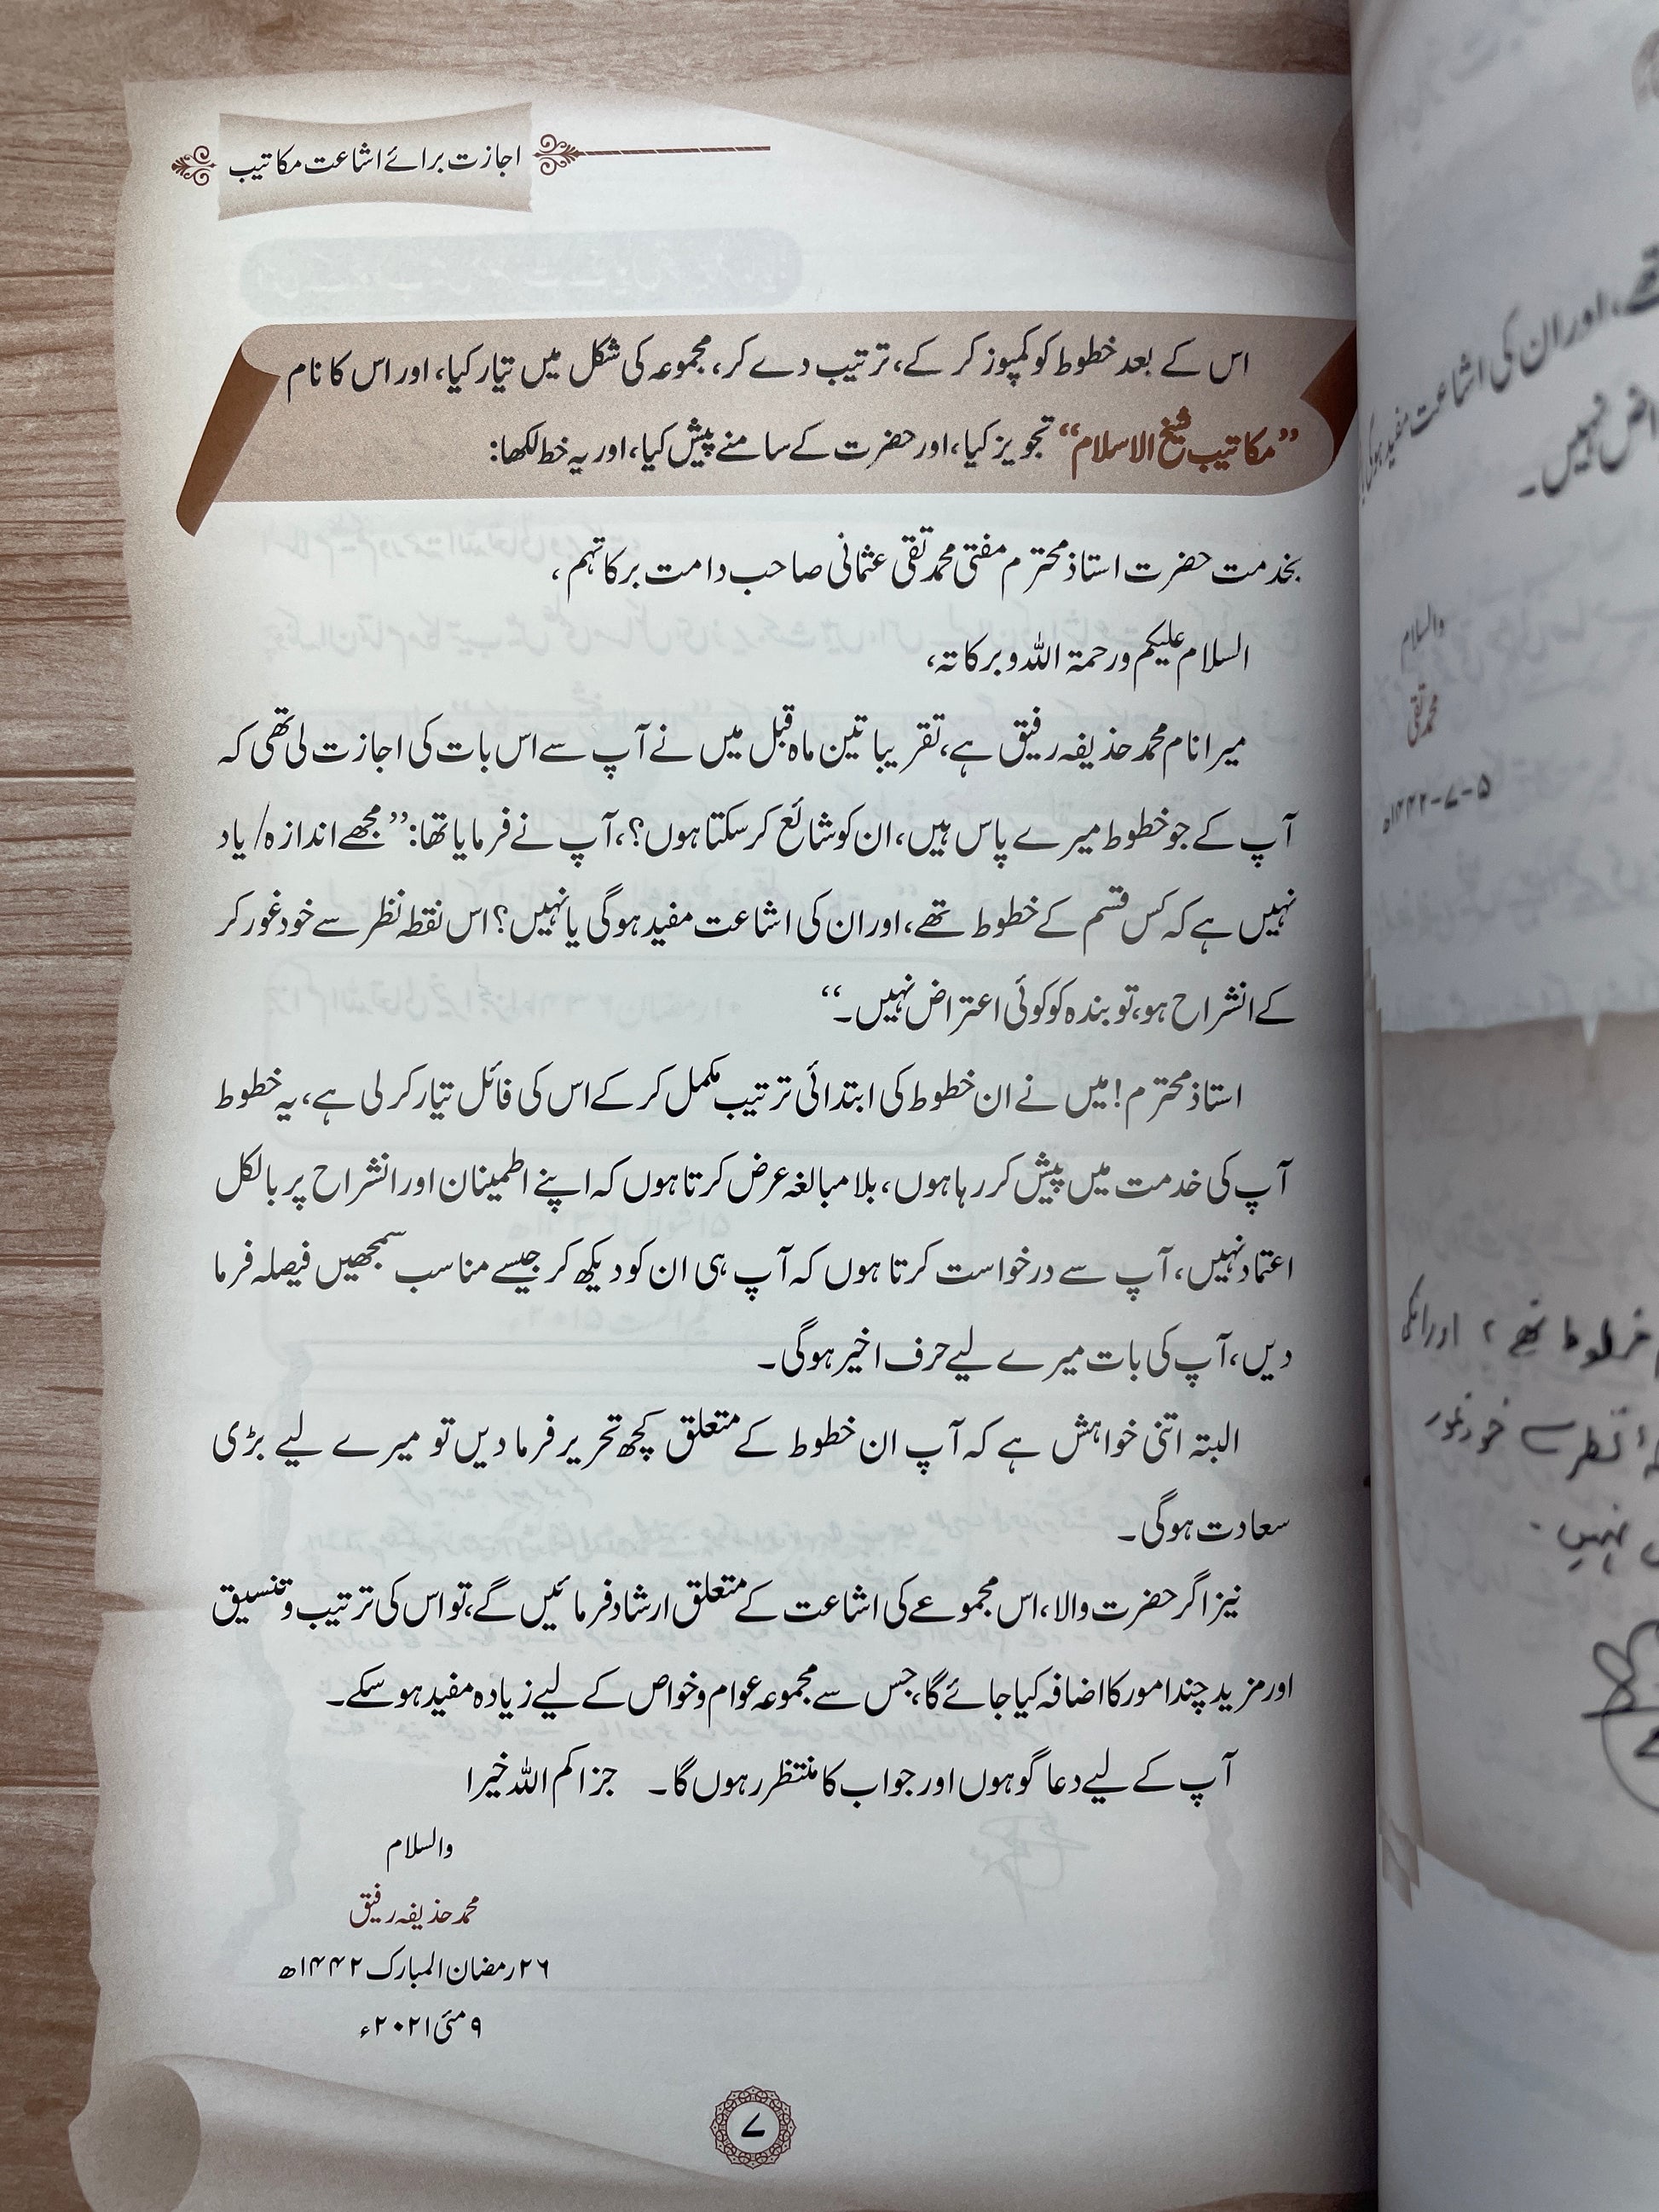 اجازت برائے اشاعت مکاتیب
اس کے بعد خطوط کو کمپوز کر کے، ترتیب دے کر، مجموعہ کی شکل میں تیار کیا، اور اس کا نام
”مکاتیب شیخ الاسلام“ تجویز کیا، اور حضرت کے سامنے پیش کیا، اور یہ خط لکھا:
بخدمت حضرت استاذ محترم مفتی محمد تقی عثمانی صاحب دامت برکاتہم،
السلام علیکم ورحمۃ اللہ وبرکاتہ،
میرا نام محمد حذیفہ رفیق ہے، تقریبا تین ماہ قبل میں نے آپ سے اس بات کی اجازت لی تھی کہ
آپ کے جو خطوط میرے پاس ہیں، ان کو شائع کر سکتا ہوں؟، آپ نے فرمایا تھا: ”مجھے اندازہ/ یاد
نہیں ہے کہ کس قسم کے خطوط تھے، اور ان کی اشاعت مفید ہوگی یا نہیں؟ اس نقطہ نظر سے خود غور کر
کے انشراح ہو، تو بندہ کو کوئی اعتراض نہیں۔“
استاذ محترم! میں نے ان خطوط کی ابتدائی ترتیب مکمل کر کے اس کی فائل تیار کر لی ہے، یہ خطوط
آپ کی خدمت میں پیش کر رہا ہوں، بلا مبالغہ عرض کرتا ہوں کہ اپنے اطمینان اور انشراح پر بالکل
اعتماد نہیں، آپ سے درخواست کرتا ہوں کہ آپ ہی ان کو دیکھ کر جیسے مناسب سمجھیں فیصلہ فرما
دیں، آپ کی بات میرے لیے حرف اخیر ہوگی۔
البتہ اتنی خواہش ہے کہ آپ ان خطوط کے متعلق کچھ تحریر فرما دیں تو میرے لیے بڑی
سعادت ہوگی۔
نیز اگر حضرت والا، اس مجموعے کی اشاعت کے متعلق ارشاد فرمائیں گے، تو اس کی ترتیب وتنسیق
اور مزید چند امور کا اضافہ کیا جائے گا، جس سے مجموعہ عوام وخواص کے لیے زیادہ مفید ہو سکے۔
آپ کے لیے دعا گو ہوں اور جواب کا منتظر رہوں گا۔ جزاکم اللہ خیرا
والسلام
محمد حذیفہ رفیق
۲۶ رمضان المبارک ۱۴۴۲ھ
۹ مئی ۲۰۲۱ء
۷
تھے، اور ان کی اشاعت مفید ہوگی
نہیں۔
والسلام
محمد تقی
۵-۷-۱۴۴۲ھ
خطوط تھے، اور انکی
نظر سے خود غور
نہیں۔